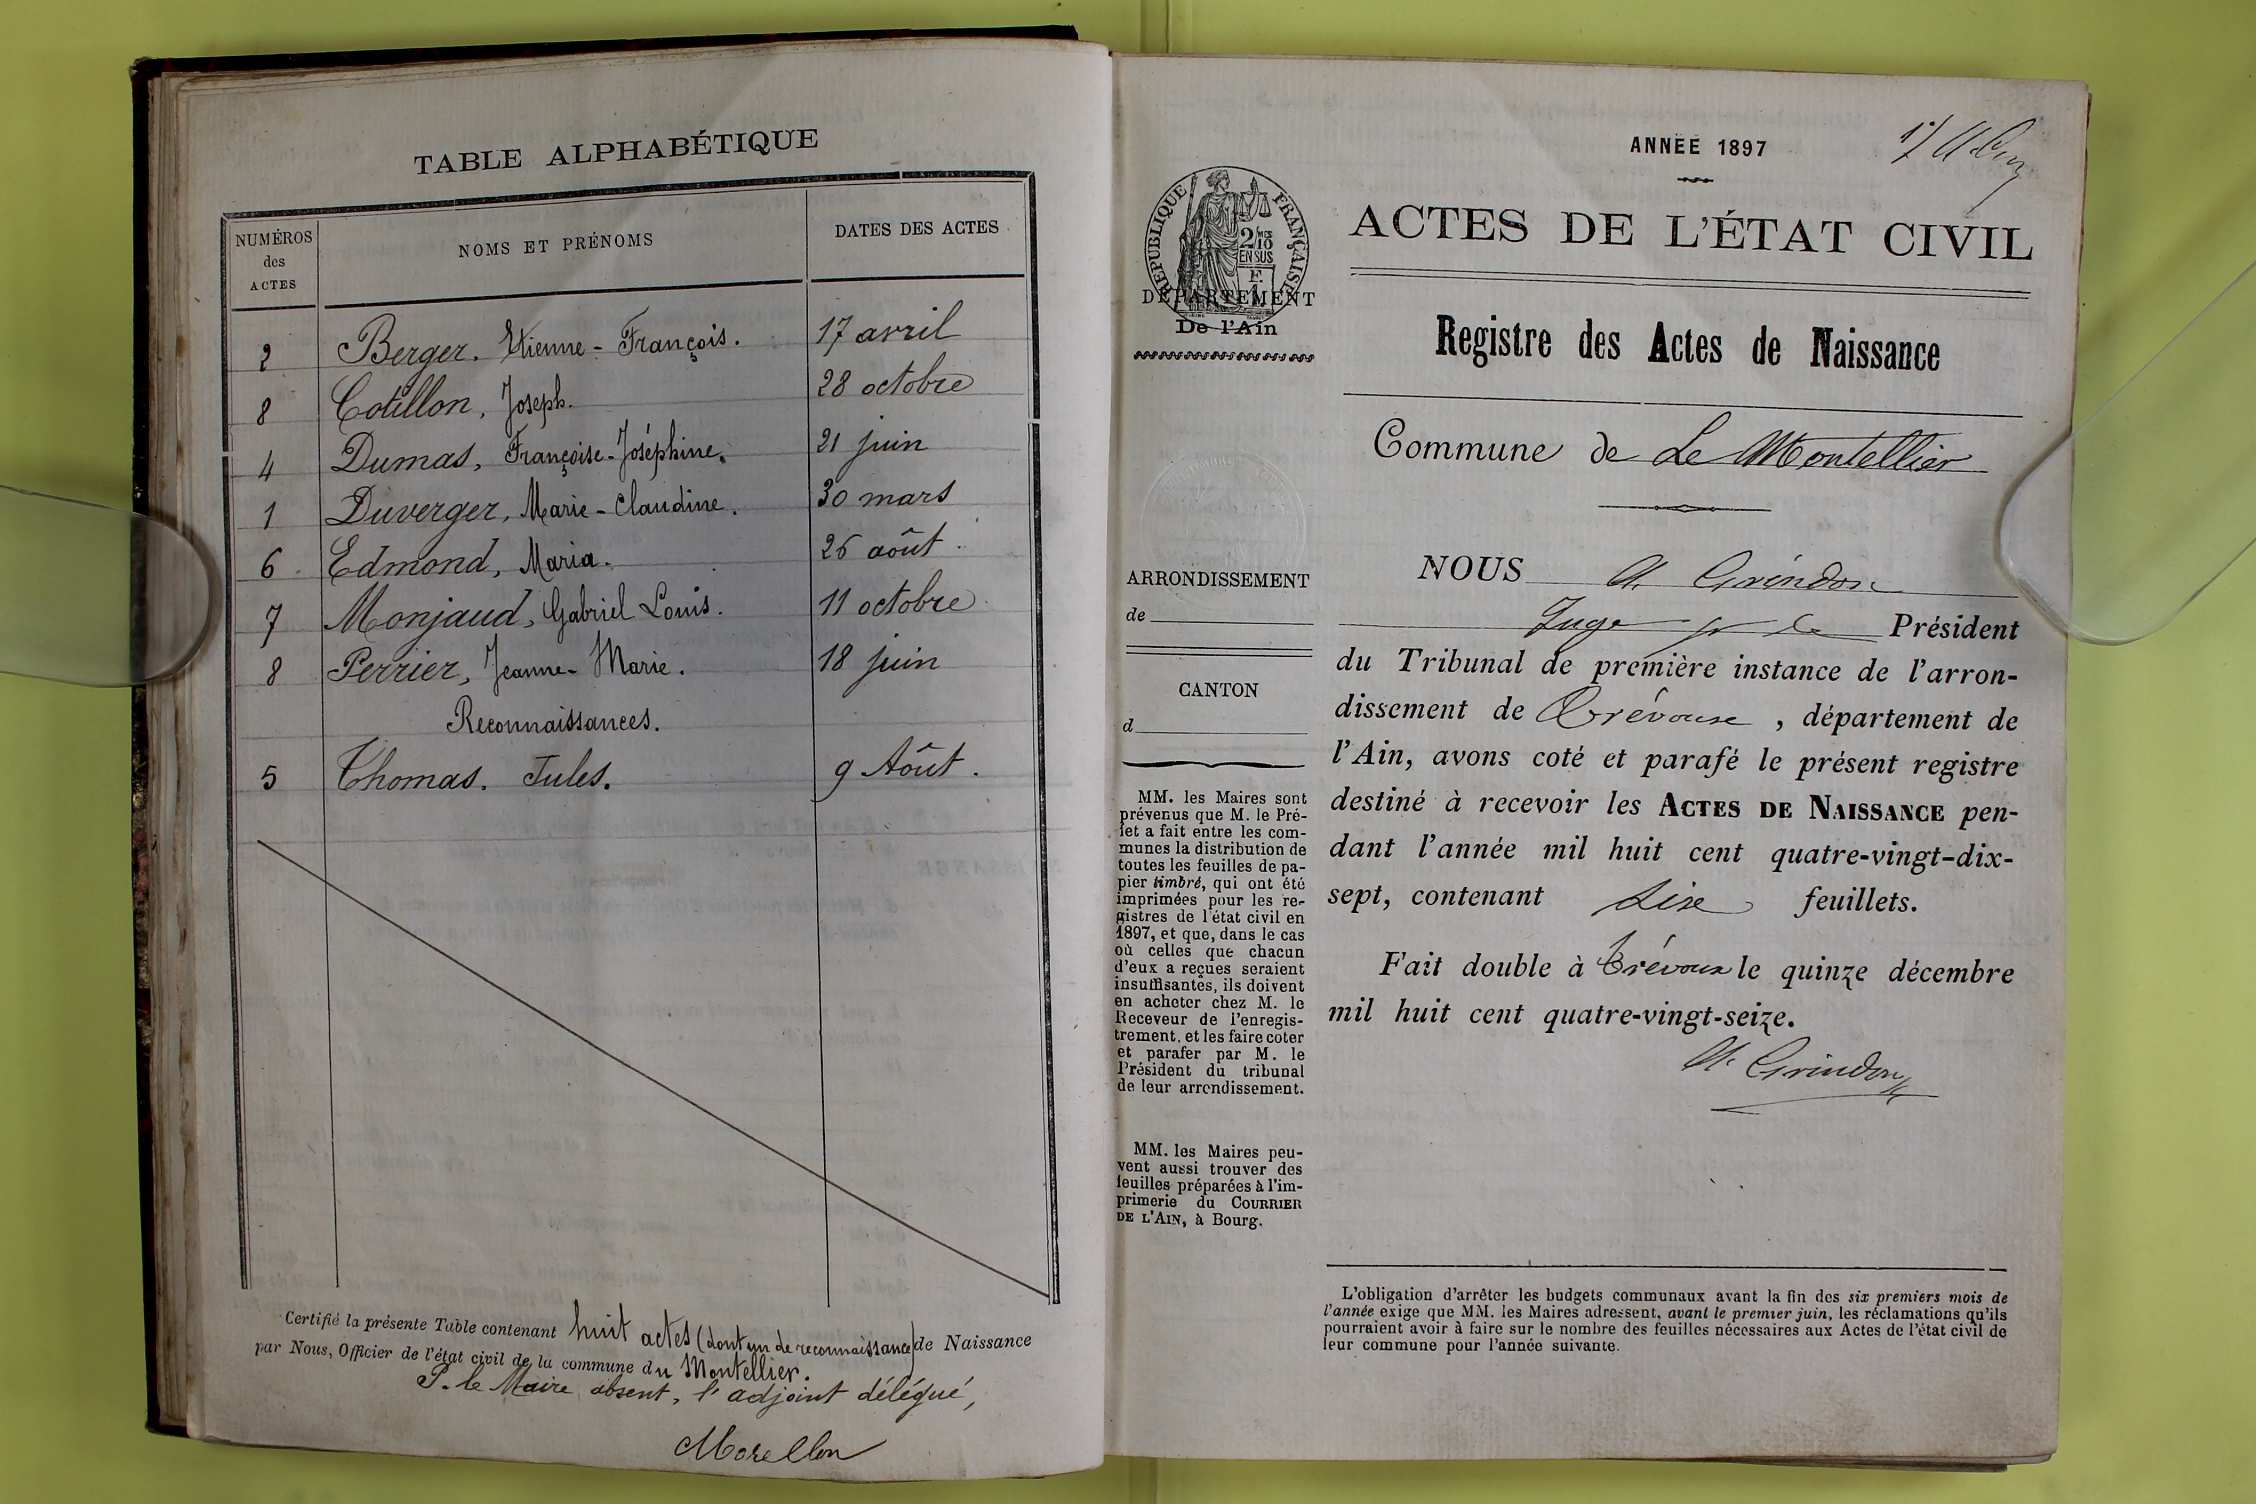 TABLE ALPHABÉTIQUE
NUMÉROS des ACTES
NOMS ET PRÉNOMS
DATES DES ACTES
2 Berger. Etienne-François. 17 avril
8 Cotillon, Joseph. 28 octobre
4 Dumas, Françoise-Joséphine. 21 juin
1 Duverger, Marie-Claudine. 30 mars
6 Edmond, Maria. 26 août
7 Monjaud, Gabriel Louis. 11 octobre
8 Perrier, Jeanne-Marie. 18 juin
Reconnaissances.
5 Thomas. Jules. 9 Aôut.
Certifié la présente Table contenant huit actes (dont un de reconnaissance) de Naissance
par Nous, Officier de l'état civil de la commune du Montellier.
P. le Maire absent, l'adjoint délégué,
Morellon
ANNÉE 1897
RÉPUBLIQUE FRANÇAISE
2/10 EN SUS
DÉPARTEMENT
De l'Ain
ARRONDISSEMENT
de
CANTON
d
MM. les Maires sont
prévenus que M. le Pré-
fet a fait entre les com-
munes la distribution de
toutes les feuilles de pa-
pier timbré, qui ont été
imprimées pour les re-
gistres de l'état civil en
1897, et que, dans le cas
où celles que chacun
d'eux a reçues seraient
insuffisantes, ils doivent
en acheter chez M. le
Receveur de l'enregis-
trement, et les faire coter
et parafer par M. le
Président du tribunal
de leur arrondissement.
MM. les Maires peu-
vent aussi trouver des
feuilles préparées à l'im-
primerie du COURRIER
DE L'AIN, à Bourg.
ACTES DE L'ÉTAT CIVIL
Registre des Actes de Naissance
Commune de Le Montellier
NOUS A. Grindon
Juge pr le Président
du Tribunal de première instance de l'arron-
dissement de Trévoux, département de
l'Ain, avons coté et parafé le présent registre
destiné à recevoir les ACTES DE NAISSANCE pen-
dant l'année mil huit cent quatre-vingt-dix-
sept, contenant six feuillets.
Fait double à Trévoux le quinze décembre
mil huit cent quatre-vingt-seize.
A. Grindon
L'obligation d'arrêter les budgets communaux avant la fin des six premiers mois de
l'année exige que MM. les Maires adressent, avant le premier juin, les réclamations qu'ils
pourraient avoir à faire sur le nombre des feuilles nécessaires aux Actes de l'état civil de
leur commune pour l'année suivante.